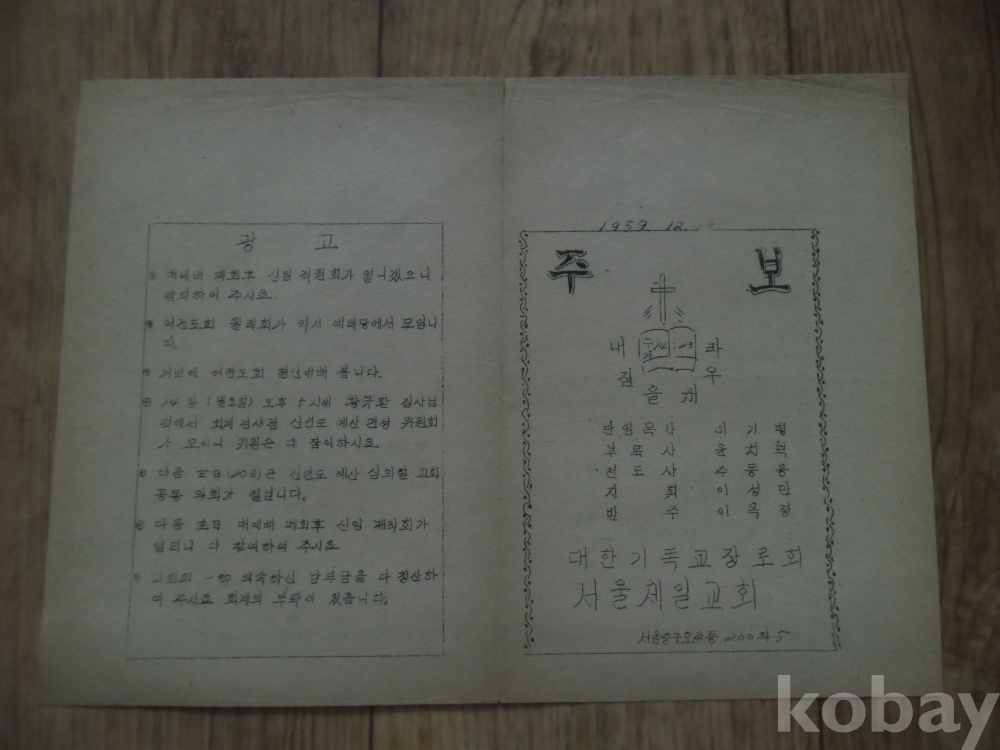 광 고
대예배 폐회후 신임 직원회가 열니겠으니
참석하여 주시요.
여전도회 월례회가 역시 예배당에서 모임니
다.
저녁에 여전도회 헌신예배 봅니다.
14일 (월요일) 오후 5시에 집사님
댁에서 회계 신년도 예산 편성 위원회
가 모이니 위원은 다 참여하시요.
다음 主日 (20日)은 신년도 예산 심의할 교회
공동 의회가 열립니다.
다음 主日 대예배 폐회후 신임 제직회가
열리니 다 참여하여 주시요
교회의 一切 약속하신 납부금을 다 청산하
여 주시요 회계의 부탁이 있읍니다.
1959. 12.
주 보
누가 14:23
내 집을 채우라
단임목사 이기병
부목사 윤치혁
전도사 주동웅
지휘 이성만
반주 이옥경
대한기독교장로회
서울제일교회
서울중구오장동 200의 5
kobay